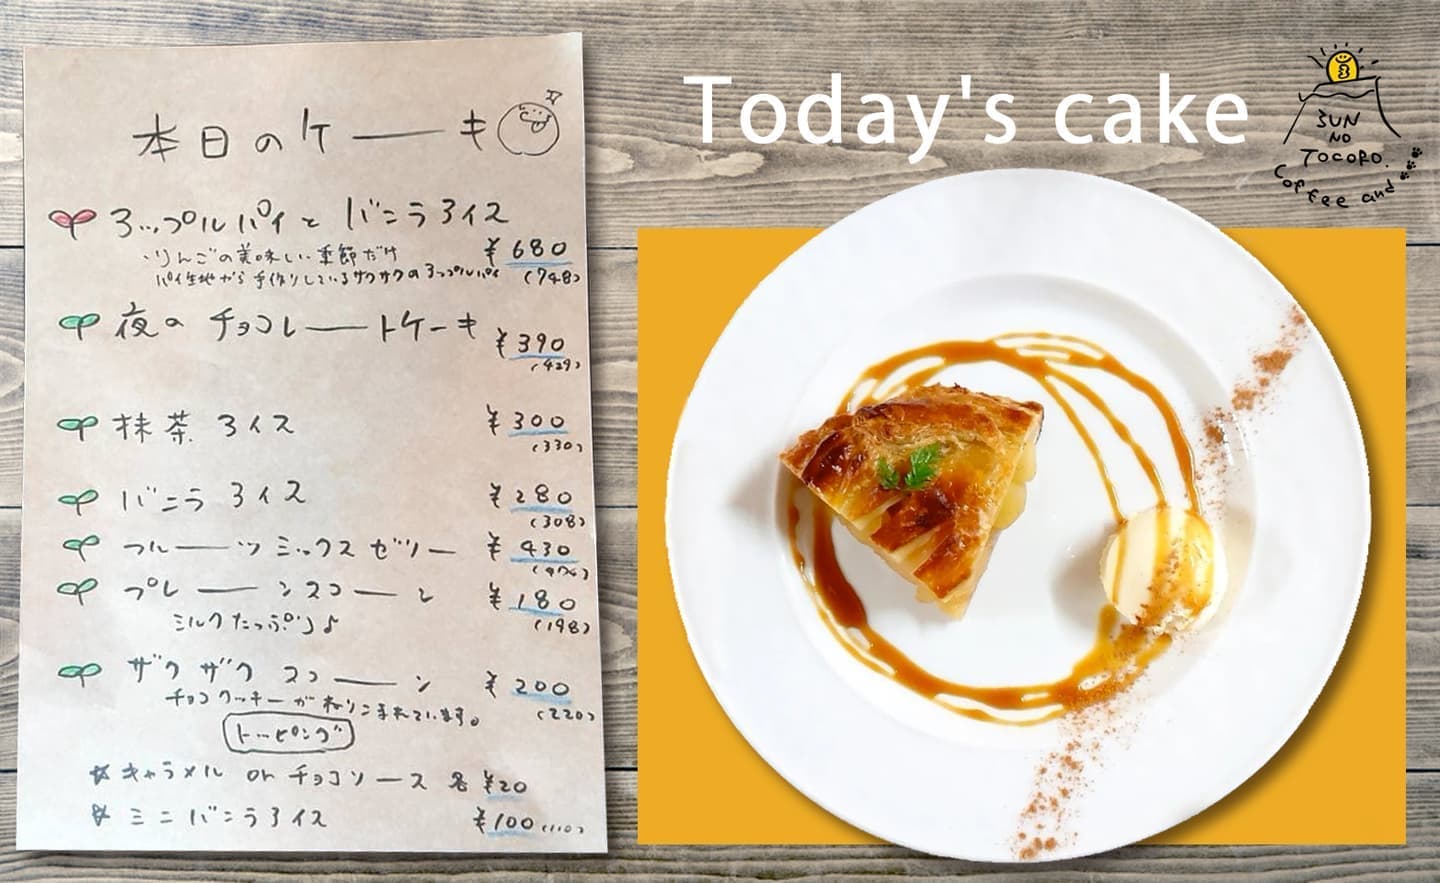 本日のケーキ
アップルパイとバニラアイス
りんごの美味しい季節だけ
¥680
パイ生地から手作りしているサクサクのアップルパイ
(748)
夜のチョコレートケーキ
¥390
(429)
抹茶アイス
¥300
(330)
バニラアイス
¥280
(308)
フルーツミックスゼリー
¥430
プレーンスコーン
¥180
ミルクたっぷり♪
(198)
ザクザクスコーン
¥200
チョコクッキーがねりこまれています。
(220)
トッピング
☆キャラメル or チョコソース 各 ¥20
☆ミニバニラアイス
¥100 (110)
Today's cake
SUN
NO
TOCORO.
Coffee and